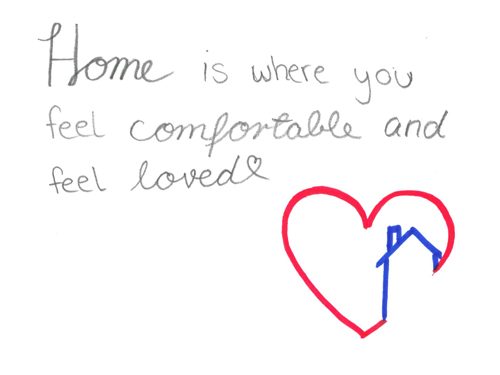 Home is where you
feel comfortable and
feel loved